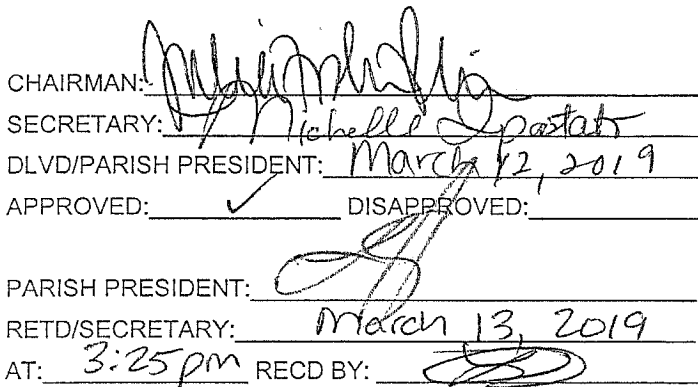 CHAIRMAN:
SECRETARY: Michelle Impastato
DLVD/PARISH PRESIDENT: March 12, 2019
APPROVED: ✓ DISAPPROVED:
PARISH PRESIDENT:
RETD/SECRETARY: March 13, 2019
AT: 3:25pm RECD BY: